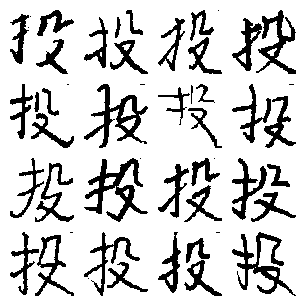 投投投投
投投投投
投投投投
投投投投